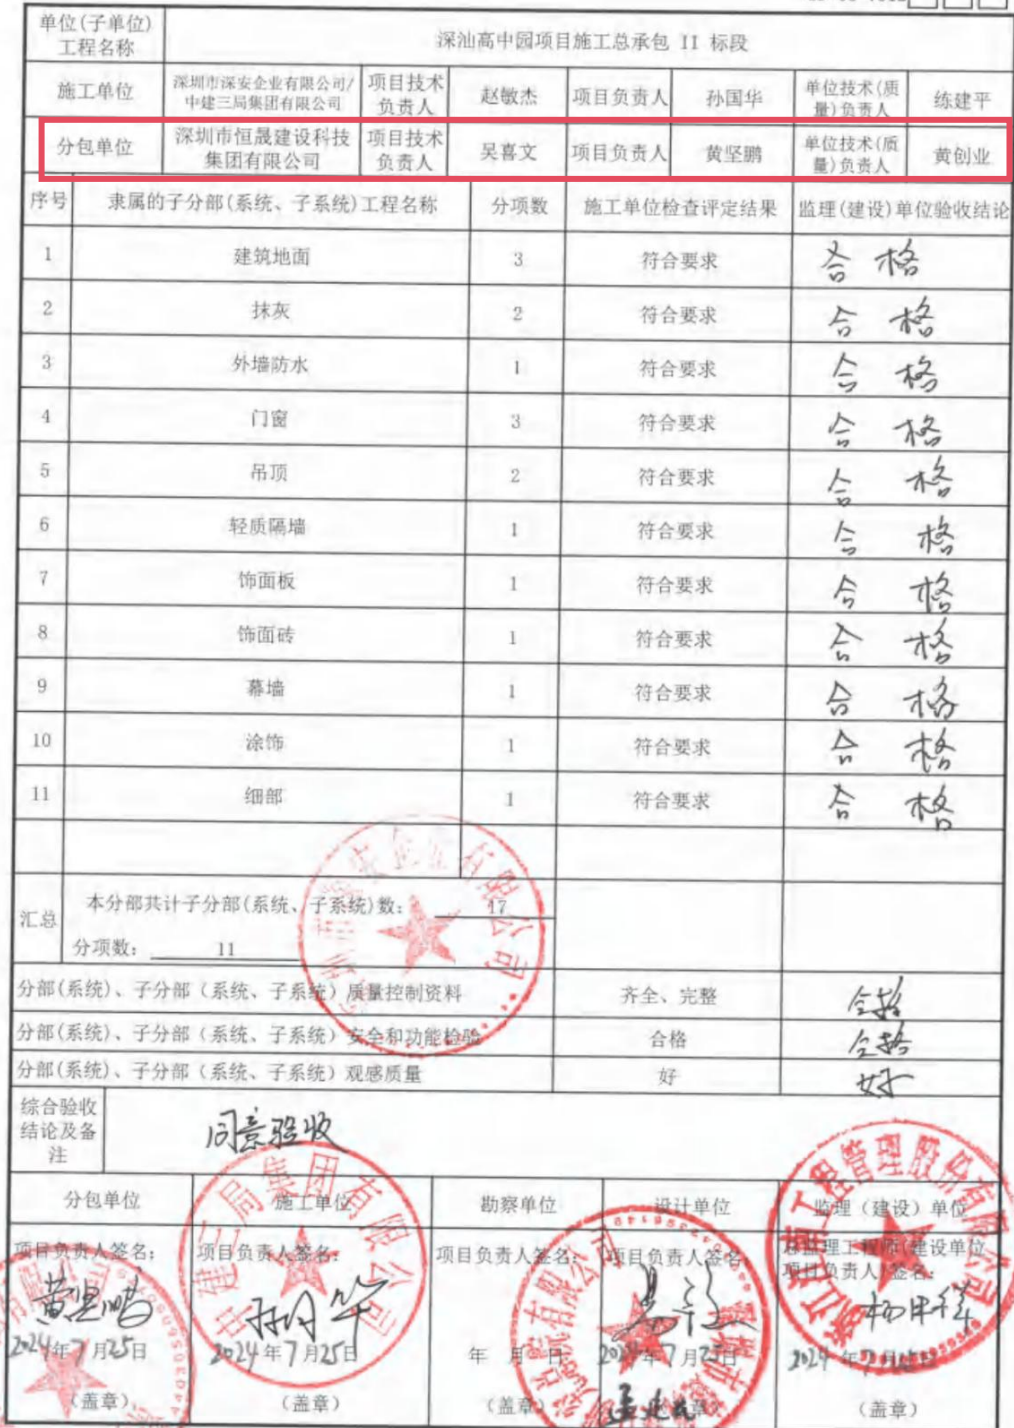 单位(子单位)
工程名称
深汕高中园项目施工总承包 II 标段
施工单位
深圳市深安企业有限公司/
中建三局集团有限公司
项目技术
负责人
赵敏杰
项目负责人
孙国华
单位技术(质
量)负责人
练建平
分包单位
深圳市恒晟建设科技
集团有限公司
项目技术
负责人
吴喜文
项目负责人
黄坚鹏
单位技术(质
量)负责人
黄创业
序号 隶属的子分部(系统、子系统)工程名称 分项数 施工单位检查评定结果 监理(建设)单位验收结论
1 建筑地面 3 符合要求 合格
2 抹灰 2 符合要求 合格
3 外墙防水 1 符合要求 合格
4 门窗 3 符合要求 合格
5 吊顶 2 符合要求 合格
6 轻质隔墙 1 符合要求 合格
7 饰面板 1 符合要求 合格
8 饰面砖 1 符合要求 合格
9 幕墙 1 符合要求 合格
10 涂饰 1 符合要求 合格
11 细部 1 符合要求 合格
汇总
本分部共计子分部(系统、子系统)数: 17
分项数: 11
分部(系统)、子分部(系统、子系统)质量控制资料 齐全、完整 合格
分部(系统)、子分部(系统、子系统)安全和功能检验 合格 合格
分部(系统)、子分部(系统、子系统)观感质量 好 好
综合验收
结论及备
注
同意验收
分包单位 施工单位 勘察单位 设计单位 监理(建设)单位
项目负责人签名: 项目负责人签名: 项目负责人签名: 项目负责人签名: 总监理工程师(建设单位
项目负责人)签名:
黄坚鹏 孙国华
2024年7月25日 2024年7月25日 年 月 日 2024年7月25日 2024年7月
(盖章) (盖章) (盖章) (盖章)
中建三局集团有限公司
工程管理股份有限公司